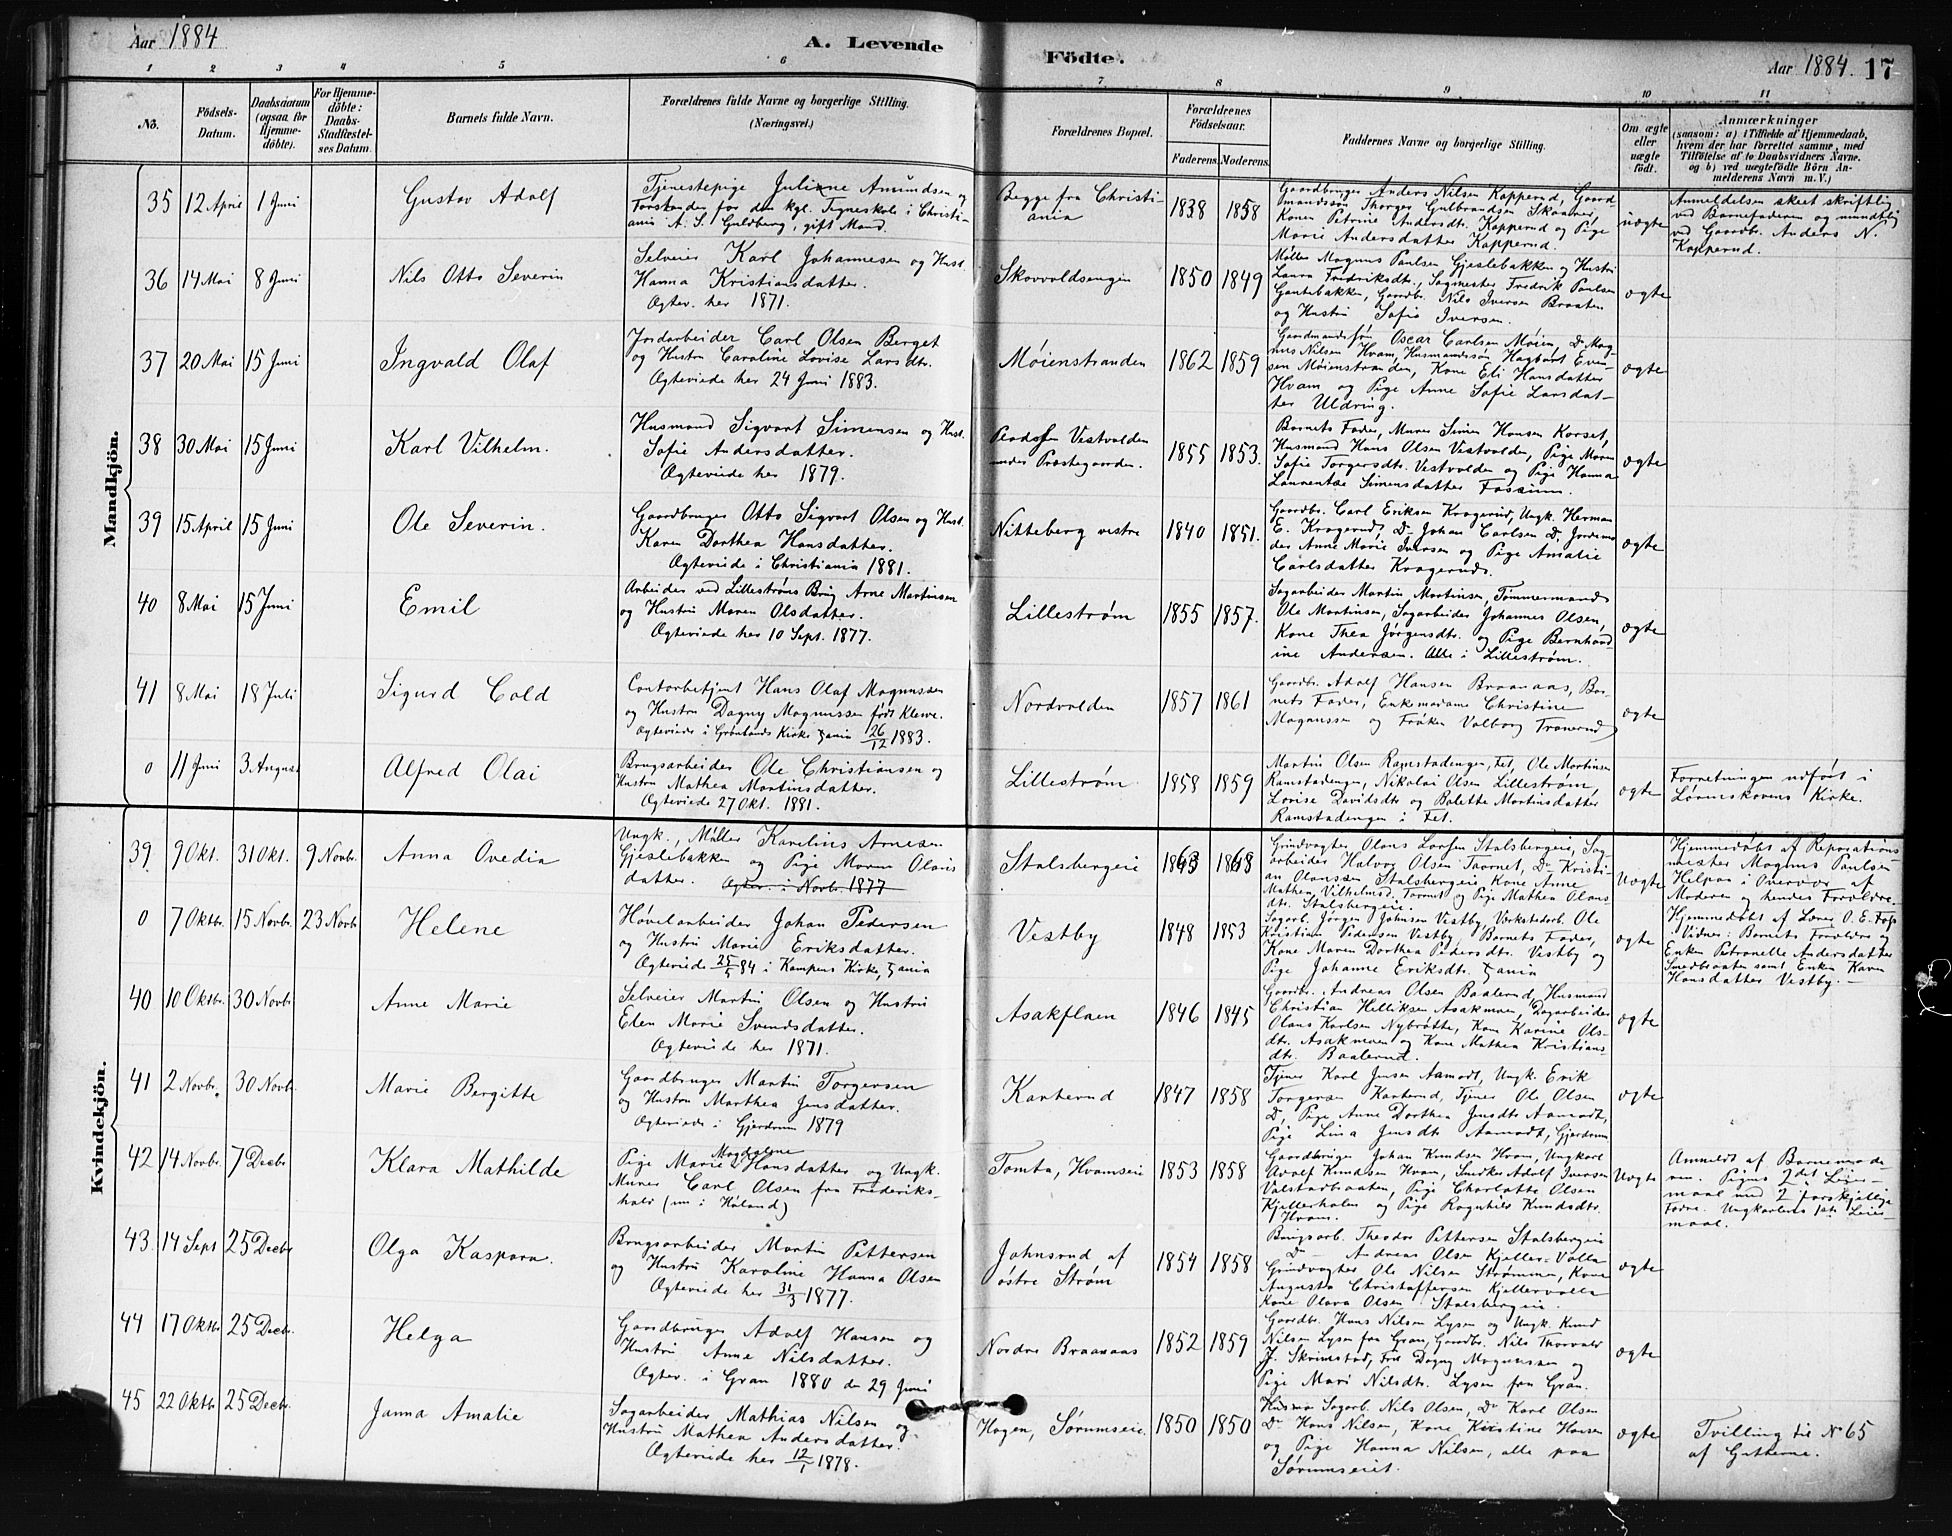 Aar 1884
A. Levende
Födte.
Aar 1884. 17
1 2 3 4 5 6 7 8 9 10 11
No.
Födsels-Datum.
Daabsdatum (ogsaa for Hjemme-döbte).
For Hjemme-döbte: Daabs-Stadfæstel-ses Datum.
Barnets fulde Navn.
Forældrenes fulde Navne og borgerlige Stilling.
(Næringsvei.)
Forældrenes Bopæl.
Forældrenes Födselsaar.
Faderens. Moderens.
Faddernes Navne og borgerlige Stilling.
Om ægte eller uægte födt.
Anmærkninger
(saasom: a) i Tilfælde af Hjemmedaab,
hvem der har forrettet samme, med
Tilföielse af to Daabsvidners Navne,
og b) ved uægtefödte Börn An-
melderens Navn m. V.)
Mandkjön.
35 12 April 1 Juni Gustav Adolf
Tjenestepige Juliane Amundsen og
Forstander for den kgl. Tegneskole i Christi-
ania A. S. Guldberg, gift Mand.
Begge fra Christi-
ania
1838 1858
Gaardbruger Anders Nilsen Kopperud, Gaard
mandssøn Thorger Gulbrandsen Skaaner,
Kone Petrine Andersdt. Kopperud og Pige
Marie Andersdatter Kopperud.
uægte
Anmeldelsen skeet skriftlig
ved Barnefaderen og mundtlig
ved Gaardb. Anders N.
Kopperud.
36 14 Mai 8 Juni Nils Otto Severin
Selveier Karl Johannesen og Hust.
Hanna Kristiansdatter.
Ægtev. her 1871.
Skovvoldsengen
1850 1849
Møller Magnus Paulsen Gjeslebakken og Hustru
Laura Fredriksdt., Sagmester Fredrik Paulsen
Gautebakken, Gaardb. Nils Iversen Braaten
og Hustru Sofie Iversen.
ægte
37 20 Mai 15 Juni Ingvald Olaf
Jordarbeider Carl Olsen Berget
og Hustru Caroline Lovise Larsdtr.
Ægteviede her 24 Juni 1883.
Møienstranden
1862 1859
Gaardmandssøn Oscar Carlsen Møien, Do Mag-
nus Nilsen Hvam, Husmandssøn Hagbart Even-
sen Møienstranden, Kone Eli Hansdatter
Hvam og Pige Anne Sofie Larsdat-
ter Uldring.
ægte
38 30 Mai 15 Juni Karl Vilhelm.
Husmand Sigvart Simensen og Hust.
Sofie Andersdatter.
Ægteviede her 1879.
Pladsen Vestvolden
under Præstegaarden.
1855 1853.
Barnets Fader, Murer Simen Hansen Korset,
Husmand Hans Olsen Vestvolden, Pige Maren
Sofie Torgersdt. Vestvolden og Pige Hanna
Laurentse Simensdatter Fossum.
ægte
39 15 April 15 Juni Ole Severin.
Gaardbruger Otto Sigvart Olsen og Hust.
Karen Dorthea Hansdatter.
Ægteviede i Christiania 1881.
Nitteberg vestre
1840 1851.
Gaardbr. Carl Eriksen Kragerud, Ungk. Herman
E. Kragerud, Do Johan Carlsen Do, Jordemo
der Anne Marie Iversen og Pige Amalie
Carlsdatter Kragerud.
ægte
40 8 Mai 15 Juni Emil
Arbeider ved Lillestrøms Brug Arne Martinsen
og Hustru Maren Olsdatter.
Ægteviede her 10 Sept. 1877.
Lillestrøm
1855 1857.
Sagarbeider Martin Martinsen, Tømmermand
Ole Martinsen, Sagarbeider Johannes Olsen,
Kone Thea Jørgensdt. og Pige Bernhard
ine Andersen. Alle i Lillestrøm.
ægte
41 8 Mai 18 Juli Sigurd Cold
Contorbetjent Hans Olaf Magnussen
og Hustru Dagny Magnussen født Kleve.
Ægteviede i Grønlands Kirke Xania 26/12 1883.
Nordvolden
1857 1861
Gaardb. Adolf Hansen Braanaas, Bar-
nets Fader, Enkemadame Christine
Magnussen og Frøken Valborg Tranerud
ægte
0 11 Juni 3 August Alfred Olai
Brugsarbeider Ole Christiansen og
Hustru Mathea Martinsdatter.
Ægteviede 27 Okt. 1881.
Lillestrøm
1858 1859
Martin Olsen Ramstadengen, Fet, Ole Martinsen
Ramstadengen, Nikolai Olsen Lillestrøm,
Lovise Davidsdt. og Bolette Martinsdatter
Ramstadengen i Fet.
ægte
Forretningen udført i
Lørenskovens Kirke.
Kvindekjön.
39. 9 Okt. 31 Okt. 9 Novbr. Anna Ovedia
Ungk., Møller Karelius Arnesen
Gjeslebakken og Pige Maren Olaus
datter. Ægtev. i Novbr. 1877
Stalsbergeie
1863 1868
Grindvogter Olaus Larsen Stalsbergeie, Sag
arbeider Halvor Olsen Tarmet, Do Kristi-
an Olaussen Stalsbergeie, Kone Anne
Mathea Vilhelmsd. Tarmet og Pige Mathea Olaus
dt. Stalsbergeie.
Uægte
Hjemmedøbt af Reparations
mester Magnus Paulsen
Helpaa i Overvær af
Moderen og hendes Forældre.
0 7 Oktbr. 15 Novbr. 23 Novbr Helene
Høvelarbeider Johan Pedersen
og Hustru Marie Eriksdatter.
Ægteviede 25/5 84 i Kampens Kirke, Xania
Vestby
1848 1853
Sagarb. Jørgen Johnsen Vestby, Værkstedarb. Ole
Kristian Pedersen Vestby, Barnets Fader,
Kone Maren Dorthea Pedersdt. Vestby og
Pige Johanne Eriksdt. Xania
ægte
Hjemmedøbt af Lærer O. E. Foss
Vidner: Barnets Forældre og
Enken Petronelle Andersdatter
Smedbraaten samt Enken Karen
Hansdatter Vestby.
40 10 Oktbr. 30 Novbr Anne Marie
Selveier Martin Olsen og Hustru
Elen Marie Svendsdatter.
Ægteviede her 1871.
Asakflaen
1846 1845
Gaardbr. Andreas Olsen Baalerud, Husmand
Christian Helliksen Asakmoen, Dagarbeider
Olaus Karlsen Nybrøtte, Kone Karine Ols-
dt. Asakmoen og Kone Mathea Kristians-
dt. Baalerud.
ægte
41 2 Novbr. 30 Novbr. Marie Bergitte
Gaardbruger Martin Torgersen
og Hustru Marthea Jensdatter.
Ægteviede i Gjerdrum 1879
Kanterud
1847 1858
Tjener Karl Jensen Aamodt, Ungk. Erik
Torgersen Kanterud, Tjener Ole Olsen
Do, Pige Anne Dorthea Jensdt. Aamodt,
Pige Lina Jensdt. Aamodt, Gjerdrum
ægte
42 14 Novbr. 7 Decbr Klara Mathilde
Pige Marie Magdalene Hansdatter og Ungk.
Murer Carl Olsen fra Frederiks-
hald (nu i Høland)
Tomta, Hvamseie
1853 1858
Gaardbruger Johan Knudsen Hvam, Ungkarl
Adolf Knudsen Hvam, Smedker Adolf Iversen
Valstadbraaten, Pige Charlotte Olsen
Kjellerholen og Pige Ragnhild Knudsdtr.
Hvam.
Uægte
Anmeldt af Barnemode-
ren. Pigens 2det Leier-
maal med 2 forskjellige
Fædre. Ungkarlens 1ste Leier-
maal.
43. 14 Sept 25 Decbr Olga Kaspara.
Brugsarbeider Martin Pettersen
og Hustru Karoline Hanna Olsen
Ægteviede her 31/3 1877.
Johnsrud af
østre Strøm
1854 1858
Brugsarb. Theodor Pettersen Stalsbergeie
Do Andreas Olsen Kjeller-Valla
Grindvogter Ole Nilsen Strømmen, Kone
Augusta Christoffersen Kjellervolla
Kone Olava Olsen Stalsbergeie.
ægte
44 17 Oktbr 25 Decbr. Helga
Gaardbruger Adolf Hansen og
Hustru Anne Nilsdatter.
Ægtev. i Gran 1880 den 29 Juni
Nordre Braanaas
1852 1859
Gaardbr. Hans Nilsen Lysen og Ungk. Knud
Nilsen Lysen fra Gran, Gaardbr. Nils Thorvald
J. Skrimstad, Frk Dagny Magnussen og
Pige Mari Nilsdt. Lysen fra Gran.
ægte
45 22 Oktb 25 Decbr. Janna Amalie
Sagarbeider Mathias Nilsen og
Hustru Mathea Andersdatter.
Ægteviede her 12/1 1878.
Hagen, Sørumseie.
1850 1850
Husmd Sagarb. Nils Olsen, Do Karl Olsen
Do Hans Nilsen, Kone Kirstine Hansen
og Pige Hanna Nilsen, alle paa
Sørumseiet.
ægte
Tvilling til No 65
af Gutterne.